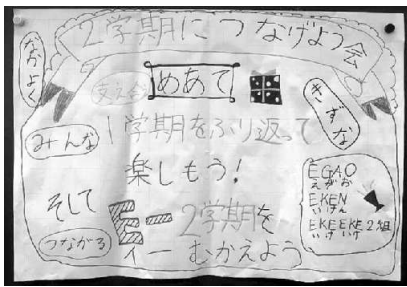 2学期につなげよう会
なかよく
支え合い
めあて
きずな
みんな
1学期をふり返って
楽しもう!
そして
E-2学期を
イーむかえよう
つながる
EGAO
えがお
EKEN
いけん
EKEEKE2組
いけいけ